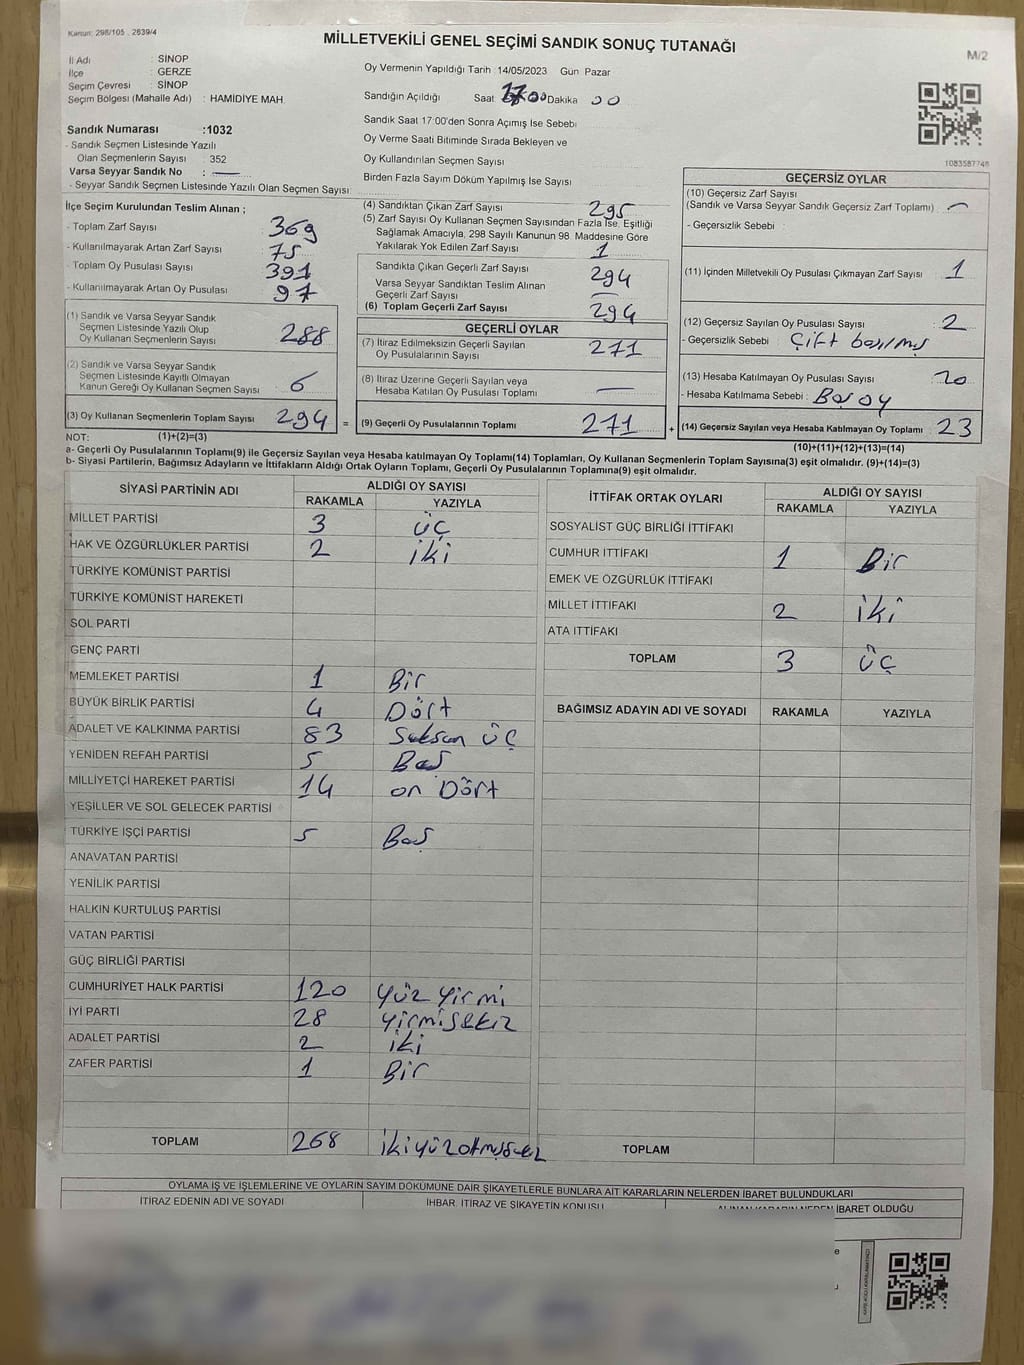 Kanun: 298/105 . 2839/4
MİLLETVEKİLİ GENEL SEÇİMİ SANDIK SONUÇ TUTANAĞI
M/2
İl Adı : SİNOP
İlçe : GERZE
Seçim Çevresi : SİNOP
Seçim Bölgesi (Mahalle Adı) : HAMİDİYE MAH.
Sandık Numarası :1032
- Sandık Seçmen Listesinde Yazılı
Olan Seçmenlerin Sayısı : 352
Varsa Seyyar Sandık No : —
- Seyyar Sandık Seçmen Listesinde Yazılı Olan Seçmen Sayısı:
Oy Vermenin Yapıldığı Tarih :14/05/2023 Gün Pazar
Sandığın Açıldığı Saat 17:00 Dakika 00
Sandık Saat 17:00'den Sonra Açımış İse Sebebi
Oy Verme Saati Bitiminde Sırada Bekleyen ve
Oy Kullandırılan Seçmen Sayısı
Birden Fazla Sayım Döküm Yapılmış İse Sayısı
1083587748
İlçe Seçim Kurulundan Teslim Alınan ;
- Toplam Zarf Sayısı : 369
- Kullanılmayarak Artan Zarf Sayısı : 75
- Toplam Oy Pusulası Sayısı : 391
- Kullanılmayarak Artan Oy Pusulası : 97
(1) Sandık ve Varsa Seyyar Sandık
Seçmen Listesinde Yazılı Olup
Oy Kullanan Seçmenlerin Sayısı : 288
(2) Sandık ve Varsa Seyyar Sandık
Seçmen Listesinde Kayıtlı Olmayan
Kanun Gereği Oy Kullanan Seçmen Sayısı : 6
(3) Oy Kullanan Seçmenlerin Toplam Sayısı : 294 =
(4) Sandıktan Çıkan Zarf Sayısı : 295
(5) Zarf Sayısı Oy Kullanan Seçmen Sayısından Fazla İse, Eşitliği
Sağlamak Amacıyla, 298 Sayılı Kanunun 98. Maddesine Göre
Yakılarak Yok Edilen Zarf Sayısı : 1
Sandıkta Çıkan Geçerli Zarf Sayısı : 294
Varsa Seyyar Sandıktan Teslim Alınan
Geçerli Zarf Sayısı : —
(6) Toplam Geçerli Zarf Sayısı : 294
GEÇERLİ OYLAR
(7) İtiraz Edilmeksizin Geçerli Sayılan
Oy Pusulalarının Sayısı : 271
(8) İtiraz Üzerine Geçerli Sayılan veya
Hesaba Katılan Oy Pusulası Toplamı : —
(9) Geçerli Oy Pusulalarının Toplamı : 271 +
GEÇERSİZ OYLAR
(10) Geçersiz Zarf Sayısı
(Sandık ve Varsa Seyyar Sandık Geçersiz Zarf Toplamı) : —
- Geçersizlik Sebebi :
(11) İçinden Milletvekili Oy Pusulası Çıkmayan Zarf Sayısı : 1
(12) Geçersiz Sayılan Oy Pusulası Sayısı : 2
- Geçersizlik Sebebi : Çift basılmış
(13) Hesaba Katılmayan Oy Pusulası Sayısı : 20
- Hesaba Katılmama Sebebi : Boş oy
(14) Geçersiz Sayılan veya Hesaba Katılmayan Oy Toplamı : 23
NOT: (1)+(2)=(3)
(10)+(11)+(12)+(13)=(14)
a- Geçerli Oy Pusulalarının Toplamı(9) ile Geçersiz Sayılan veya Hesaba katılmayan Oy Toplamı(14) Toplamları, Oy Kullanan Seçmenlerin Toplam Sayısına(3) eşit olmalıdır. (9)+(14)=(3)
b- Siyasi Partilerin, Bağımsız Adayların ve İttifakların Aldığı Ortak Oyların Toplamı, Geçerli Oy Pusulalarının Toplamına(9) eşit olmalıdır.
SİYASİ PARTİNİN ADI ALDIĞI OY SAYISI
RAKAMLA YAZIYLA
MİLLET PARTİSİ 3 üç
HAK VE ÖZGÜRLÜKLER PARTİSİ 2 iki
TÜRKİYE KOMÜNİST PARTİSİ
TÜRKİYE KOMÜNİST HAREKETİ
SOL PARTİ
GENÇ PARTİ
MEMLEKET PARTİSİ 1 Bir
BÜYÜK BİRLİK PARTİSİ 4 Dört
ADALET VE KALKINMA PARTİSİ 83 Seksen üç
YENİDEN REFAH PARTİSİ 5 Beş
MİLLİYETÇİ HAREKET PARTİSİ 14 on Dört
YEŞİLLER VE SOL GELECEK PARTİSİ
TÜRKİYE İŞÇİ PARTİSİ 5 Beş
ANAVATAN PARTİSİ
YENİLİK PARTİSİ
HALKIN KURTULUŞ PARTİSİ
VATAN PARTİSİ
GÜÇ BİRLİĞİ PARTİSİ
CUMHURİYET HALK PARTİSİ 120 Yüz Yirmi
İYİ PARTİ 28 Yirmisekiz
ADALET PARTİSİ 2 iki
ZAFER PARTİSİ 1 Bir
TOPLAM 268 ikiyüzatmışsekiz
İTTİFAK ORTAK OYLARI ALDIĞI OY SAYISI
RAKAMLA YAZIYLA
SOSYALİST GÜÇ BİRLİĞİ İTTİFAKI
CUMHUR İTTİFAKI 1 Bir
EMEK VE ÖZGÜRLÜK İTTİFAKI
MİLLET İTTİFAKI 2 iki
ATA İTTİFAKI
TOPLAM 3 üç
BAĞIMSIZ ADAYIN ADI VE SOYADI RAKAMLA YAZIYLA
TOPLAM
OYLAMA İŞ VE İŞLEMLERİNE VE OYLARIN SAYIM DÖKÜMÜNE DAİR ŞİKAYETLERLE BUNLARA AİT KARARLARIN NELERDEN İBARET BULUNDUKLARI
İTİRAZ EDENİN ADI VE SOYADI İHBAR, İTİRAZ VE ŞİKAYETİN KONUSU ALINAN KARARIN NEDEN İBARET OLDUĞU